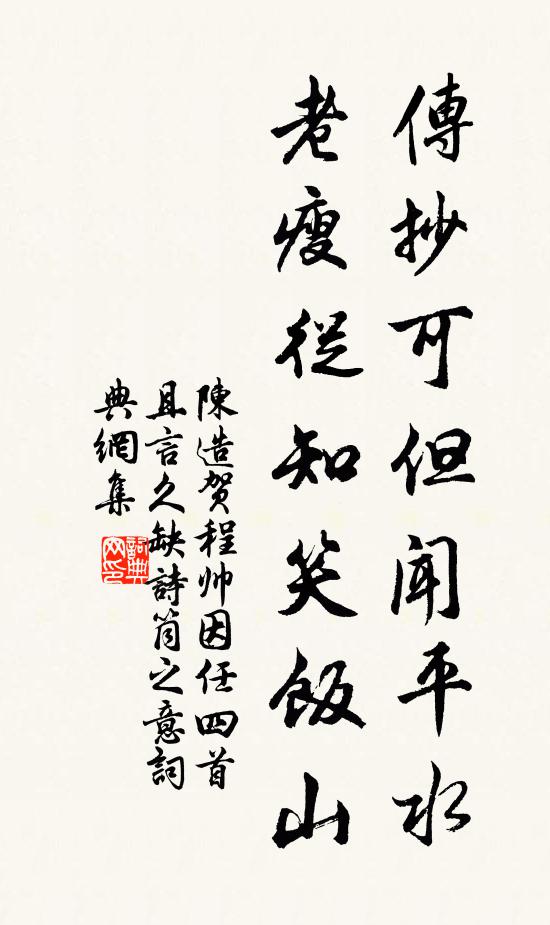 傳抄可但聞平水
老瘦從知笑飯山
陳造賀程帅因任四首
且言久缺詩筒之意詞
典網集
詞典
网印